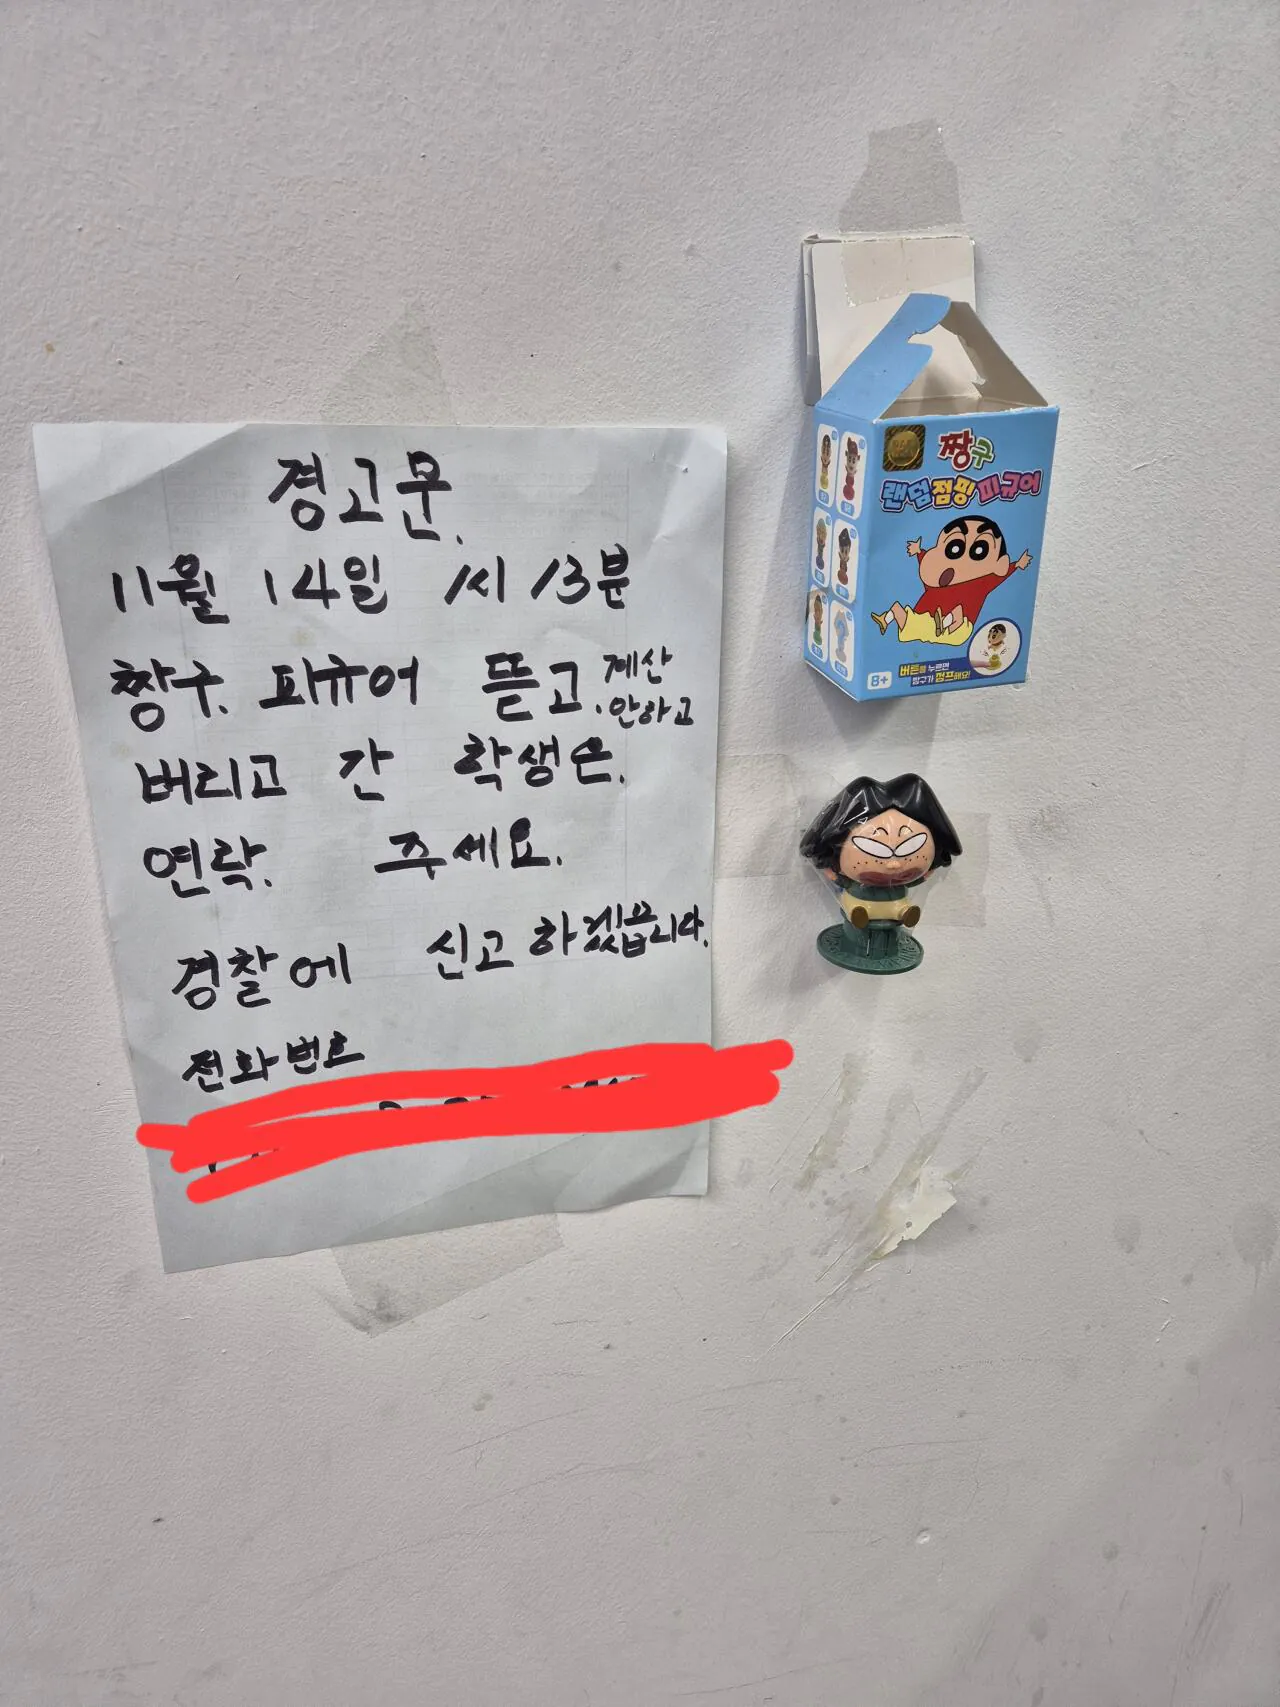 경고문.
11월 14일 1시 13분
짱구. 피규어 뜯고. 계산 안하고
버리고 간 학생은.
연락. 주세요.
경찰에 신고하겠읍니다.
전화번호
짱구
랜덤점핑피규어
8+
버튼를 누르면
짱구가 점프해요!